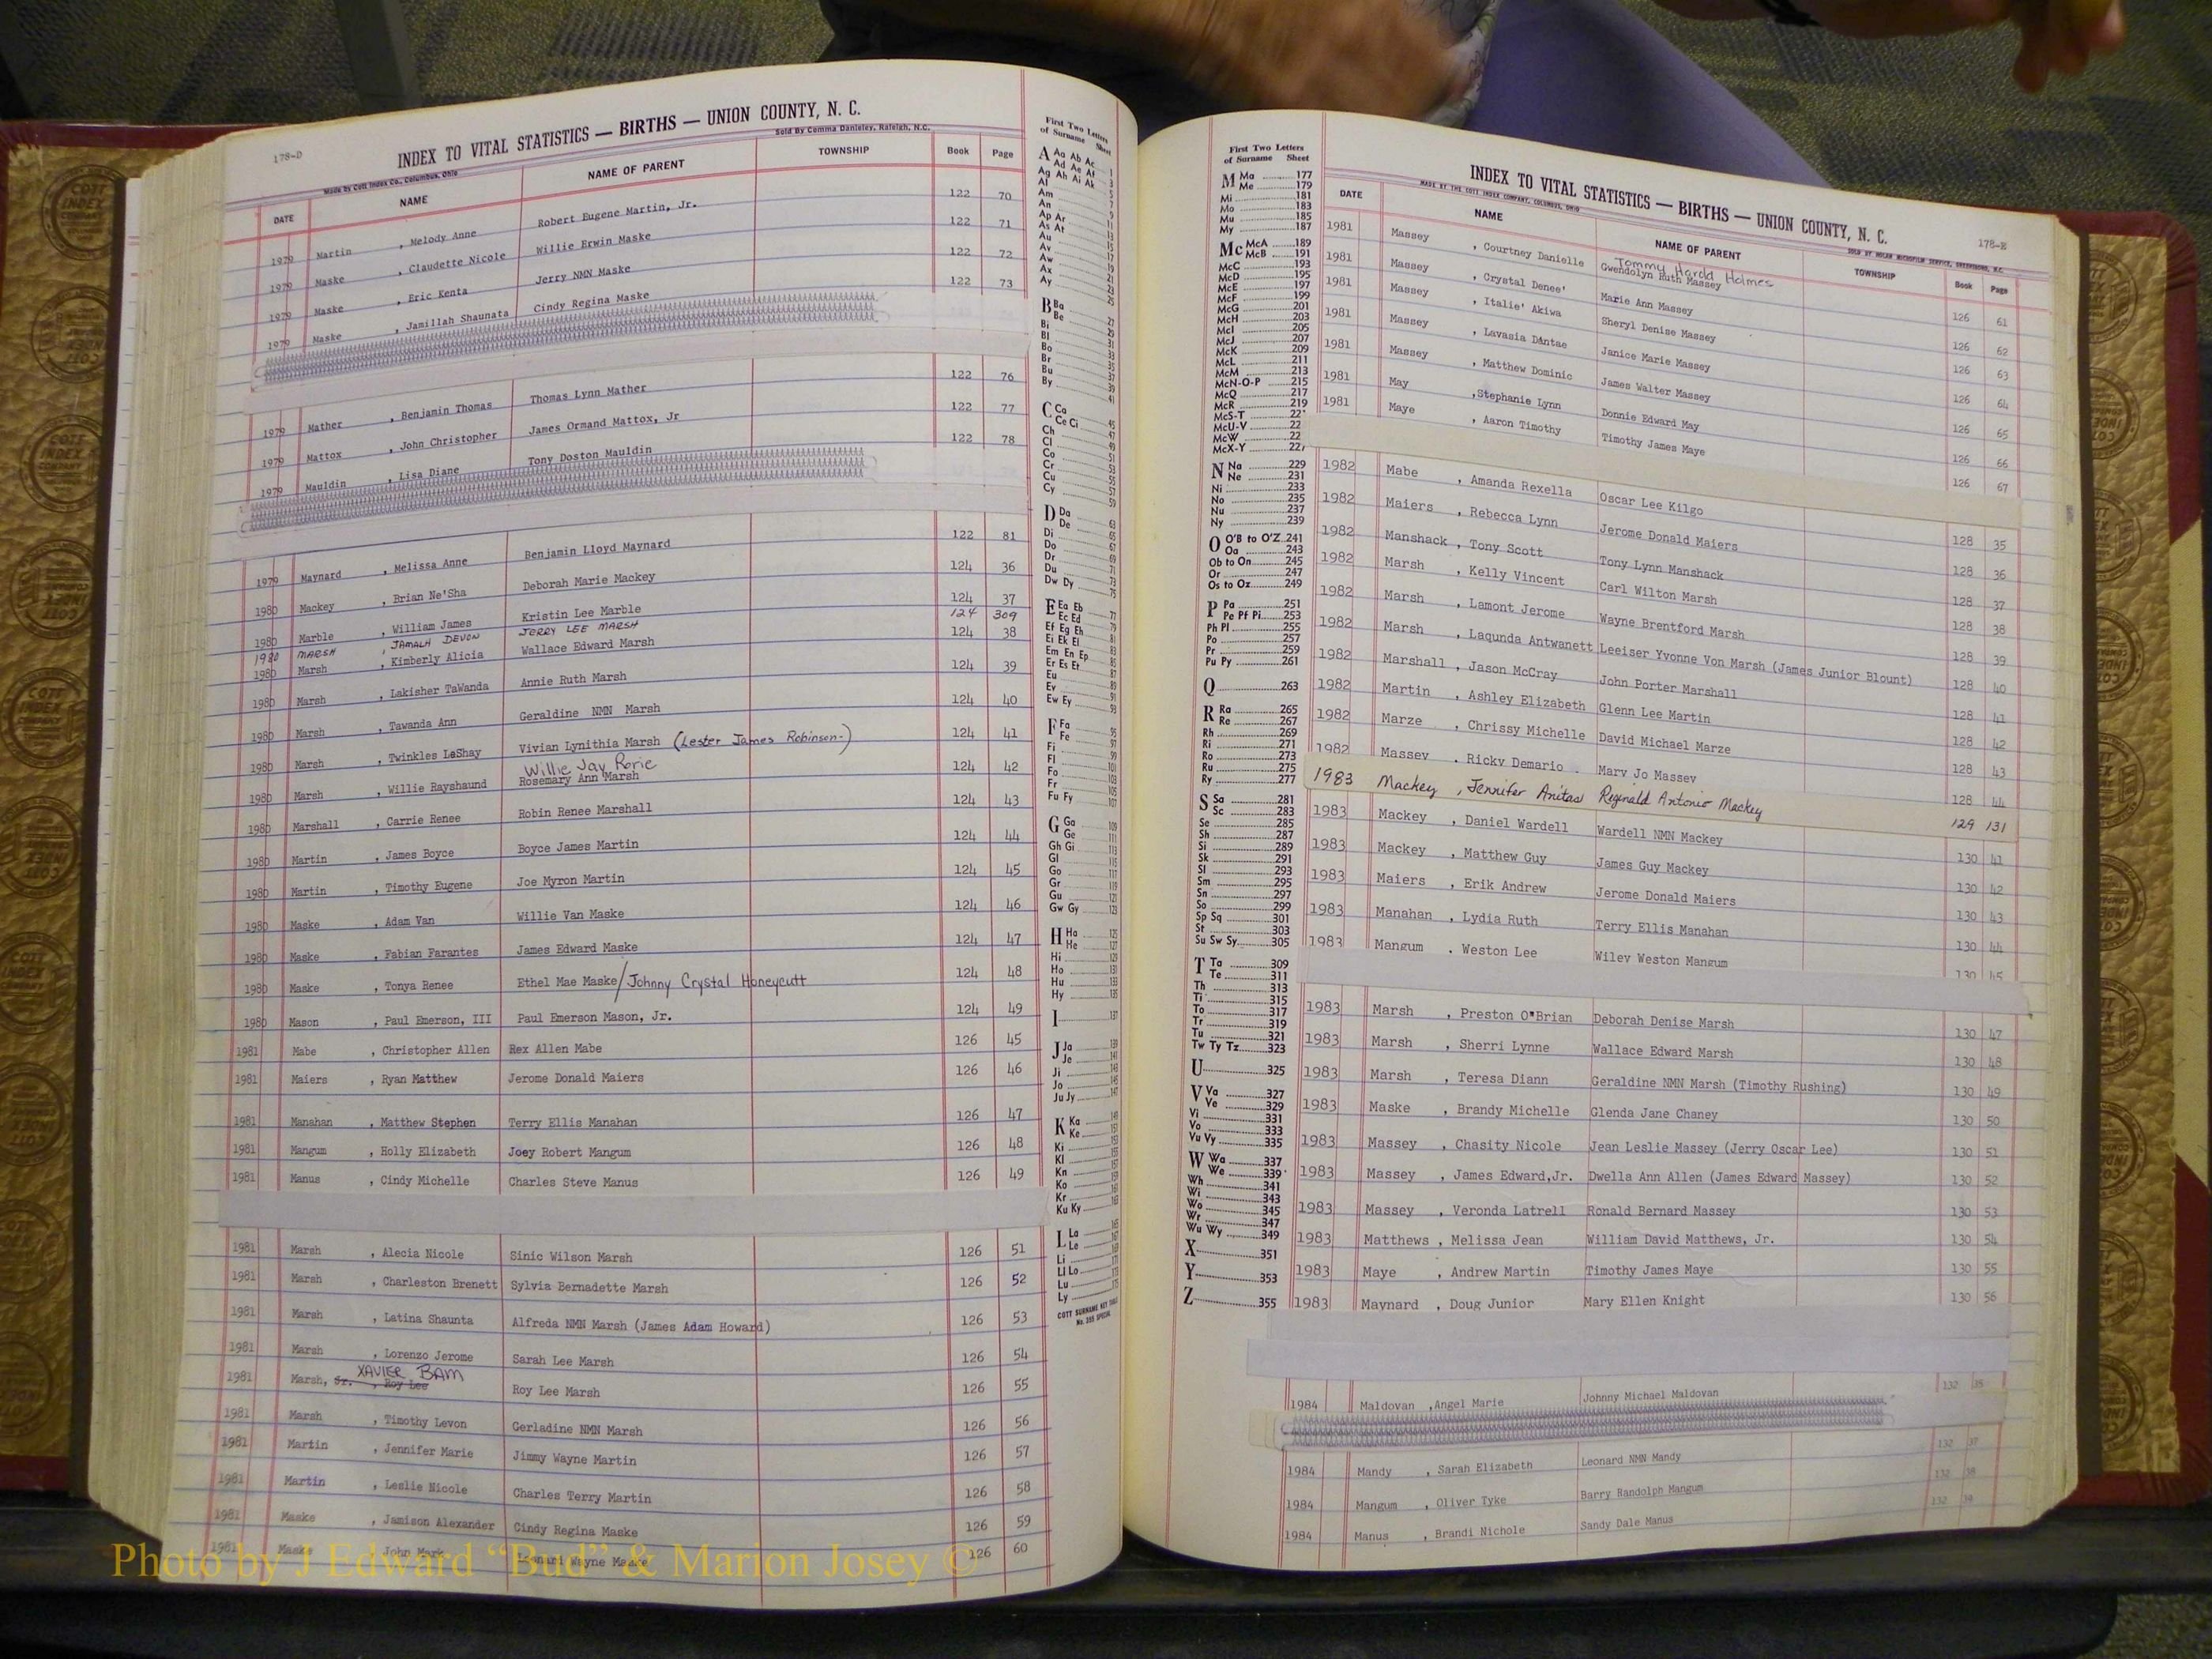 178-D
INDEX TO VITAL STATISTICS — BIRTHS — UNION COUNTY, N. C.
Made by Cott Index Co., Columbus, Ohio
Sold By Comma Danieley, Raleigh, N.C.
DATE NAME NAME OF PARENT TOWNSHIP Book Page
1979 Martin , Melody Anne Robert Eugene Martin, Jr. 122 70
1979 Maske , Claudette Nicole Willie Erwin Maske 122 71
1979 Maske , Eric Kenta Jerry NMN Maske 122 72
1979 Maske , Jamillah Shaunata Cindy Regina Maske 122 73
1979 Mather , Benjamin Thomas Thomas Lynn Mather 122 76
1979 Mattox , John Christopher James Ormand Mattox, Jr 122 77
1979 Mauldin , Lisa Diane Tony Doston Mauldin 122 78
1979 Maynard , Melissa Anne Benjamin Lloyd Maynard 122 81
1980 Mackey , Brian Ne'Sha Deborah Marie Mackey 124 36
1980 Marble , William James Kristin Lee Marble 124 37
1980 MARSH , JAMALH DEVON JERRY LEE MARSH 124 309
1980 Marsh , Kimberly Alicia Wallace Edward Marsh 124 38
1980 Marsh , Lakisher TaWanda Annie Ruth Marsh 124 39
1980 Marsh , Tawanda Ann Geraldine NMN Marsh 124 40
1980 Marsh , Twinkles LeShay Vivian Lynithia Marsh (Lester James Robinson-) 124 41
Willie Jay Rorie
1980 Marsh , Willie Rayshaund Rosemary Ann Marsh 124 42
1980 Marshall , Carrie Renee Robin Renee Marshall 124 43
1980 Martin , James Boyce Boyce James Martin 124 44
1980 Martin , Timothy Eugene Joe Myron Martin 124 45
1980 Maske , Adam Van Willie Van Maske 124 46
1980 Maske , Fabian Farantes James Edward Maske 124 47
1980 Maske , Tonya Renee Ethel Mae Maske/Johnny Crystal Honeycutt 124 48
1980 Mason , Paul Emerson, III Paul Emerson Mason, Jr. 124 49
1981 Mabe , Christopher Allen Rex Allen Mabe 126 45
1981 Maiers , Ryan Matthew Jerome Donald Maiers 126 46
1981 Manahan , Matthew Stephen Terry Ellis Manahan 126 47
1981 Mangum , Holly Elizabeth Joey Robert Mangum 126 48
1981 Manus , Cindy Michelle Charles Steve Manus 126 49
1981 Marsh , Alecia Nicole Sinic Wilson Marsh 126 51
1981 Marsh , Charleston Brenett Sylvia Bernadette Marsh 126 52
1981 Marsh , Latina Shaunta Alfreda NMN Marsh (James Adam Howard) 126 53
1981 Marsh , Lorenzo Jerome Sarah Lee Marsh 126 54
XAVIER BAM
1981 Marsh, Sr. , Roy Lee Roy Lee Marsh 126 55
1981 Marsh , Timothy Levon Gerladine NMN Marsh 126 56
1981 Martin , Jennifer Marie Jimmy Wayne Martin 126 57
1981 Martin , Leslie Nicole Charles Terry Martin 126 58
1981 Maske , Jamison Alexander Cindy Regina Maske 126 59
1981 Maske , John Mark Leonard Wayne Maske 126 60
First Two Letters
of Surname Sheet
A Aa Ab Ac 1
Ad Ae Af 3
Ag Ah Ai Ak 5
Al
Am
An
Ap Ar
As At
Au
Av
Aw
Ax
Ay
B Ba
Be 27
Bi
Bl
Bo
Br
Bu
By
C Ca
Ce Ci 45
Ch 47
Cl 49
Co 51
Cr 53
Cu 55
Cy 57
D Da 63
De
Di
Do
Dr
Du
Dw Dy 75
E Ea Eb 77
Ec Ed
Ef Eg Eh
Ei Ek El
Em En Ep
Er Es Et
Eu
Ev
Ew Ey 93
F Fa 95
Fe 97
Fi
Fl
Fo
Fr
Fu Fy 107
G Ga 109
Ge 111
Gh Gi 113
Gl 115
Go 117
Gr 119
Gu 121
Gw Gy 123
H Ha 125
He 127
Hi 129
Ho 131
Hu 133
Hy 135
I 137
J Ja 139
Je 141
Ji
Jo
Ju Jy
K Ka 149
Ke 151
Ki
Kl
Kn
Ko
Kr
Ku Ky
L La 165
Le
Li
Ll Lo
Lu
Ly
COTT SURNAME KEY TABLE
First Two Letters
of Surname Sheet
M Ma 177
Me 179
Mi 181
Mo 183
Mu 185
My 187
Mc McA 189
McB 191
McC 193
McD 195
McE 197
McF 199
McG 201
McH 203
McI 205
McJ 207
McK 209
McL 211
McM 213
McN-O-P 215
McQ 217
McR 219
McS-T 22
McU-V 22
McW 22
McX-Y 227
N Na 229
Ne 231
Ni 233
No 235
Nu 237
Ny 239
O O'B to O'Z 241
Oa 243
Ob to On 245
Or 247
Os to Oz 249
P Pa 251
Pe Pf Pi 253
Ph Pl 255
Po 257
Pr 259
Pu Py 261
Q 263
R Ra 265
Re 267
Rh 269
Ri 271
Ro 273
Ru 275
Ry 277
S Sa 281
Sc 283
Se 285
Sh 287
Si 289
Sk 291
Sl 293
Sm 295
Sn 297
So 299
Sp Sq 301
St 303
Su Sw Sy 305
T Ta 309
Te 311
Th 313
Ti 315
To 317
Tr 319
Tu 321
Tw Ty Tz 323
U 325
V Va 327
Ve 329
Vi 331
Vo 333
Vu Vy 335
W Wa 337
We 339
Wh 341
Wi 343
Wo 345
Wr 347
Wu Wy 349
X 351
Y 353
Z 355
INDEX TO VITAL STATISTICS — BIRTHS — UNION COUNTY, N. C.
178-E
MADE BY THE COTT INDEX COMPANY, COLUMBUS, OHIO
SOLD BY NOLAN MICROFILM SERVICE, GREENSBORO, N.C.
DATE NAME NAME OF PARENT TOWNSHIP Book Page
Tommy Harold Holmes
1981 Massey , Courtney Danielle Gwendolyn Ruth Massey 126 61
1981 Massey , Crystal Denee' Marie Ann Massey 126 62
1981 Massey , Italie' Akiwa Sheryl Denise Massey 126 63
1981 Massey , Lavasia Dantae Janice Marie Massey 126 64
1981 Massey , Matthew Dominic James Walter Massey 126 65
1981 May ,Stephanie Lynn Donnie Edward May 126 66
1981 Maye , Aaron Timothy Timothy James Maye 126 67
1982 Mabe , Amanda Rexella Oscar Lee Kilgo 128 35
1982 Maiers , Rebecca Lynn Jerome Donald Maiers 128 36
1982 Manshack , Tony Scott Tony Lynn Manshack 128 37
1982 Marsh , Kelly Vincent Carl Wilton Marsh 128 38
1982 Marsh , Lamont Jerome Wayne Brentford Marsh 128 39
1982 Marsh , Laqunda Antwanett Leeiser Yvonne Von Marsh (James Junior Blount) 128 40
1982 Marshall , Jason McCray John Porter Marshall 128 41
1982 Martin , Ashley Elizabeth Glenn Lee Martin 128 42
1982 Marze , Chrissy Michelle David Michael Marze 128 43
1982 Massey , Ricky Demario . Mary Jo Massey 128 44
1983 Mackey , Jennifer Anitas Reginald Antonio Mackey 129 131
1983 Mackey , Daniel Wardell Wardell NMN Mackey 130 41
1983 Mackey , Matthew Guy James Guy Mackey 130 42
1983 Maiers , Erik Andrew Jerome Donald Maiers 130 43
1983 Manahan , Lydia Ruth Terry Ellis Manahan 130 44
1983 Mangum , Weston Lee Wiley Weston Mangum 130 45
1983 Marsh , Preston O"Brian Deborah Denise Marsh 130 47
1983 Marsh , Sherri Lynne Wallace Edward Marsh 130 48
1983 Marsh , Teresa Diann Geraldine NMN Marsh (Timothy Rushing) 130 49
1983 Maske , Brandy Michelle Glenda Jane Chaney 130 50
1983 Massey , Chasity Nicole Jean Leslie Massey (Jerry Oscar Lee) 130 51
1983 Massey , James Edward,Jr. Dwella Ann Allen (James Edward Massey) 130 52
1983 Massey , Veronda Latrell Ronald Bernard Massey 130 53
1983 Matthews , Melissa Jean William David Matthews, Jr. 130 54
1983 Maye , Andrew Martin Timothy James Maye 130 55
1983 Maynard , Doug Junior Mary Ellen Knight 130 56
1984 Maldovan ,Angel Marie Johnny Michael Maldovan 132 35
1984 Mandy , Sarah Elizabeth Leonard NMN Mandy 132 37
1984 Mangum , Oliver Tyke Barry Randolph Mangum 132 38
1984 Manus , Brandi Nichole Sandy Dale Manus 132
Photo by J Edward “Bud” & Marion Josey ©